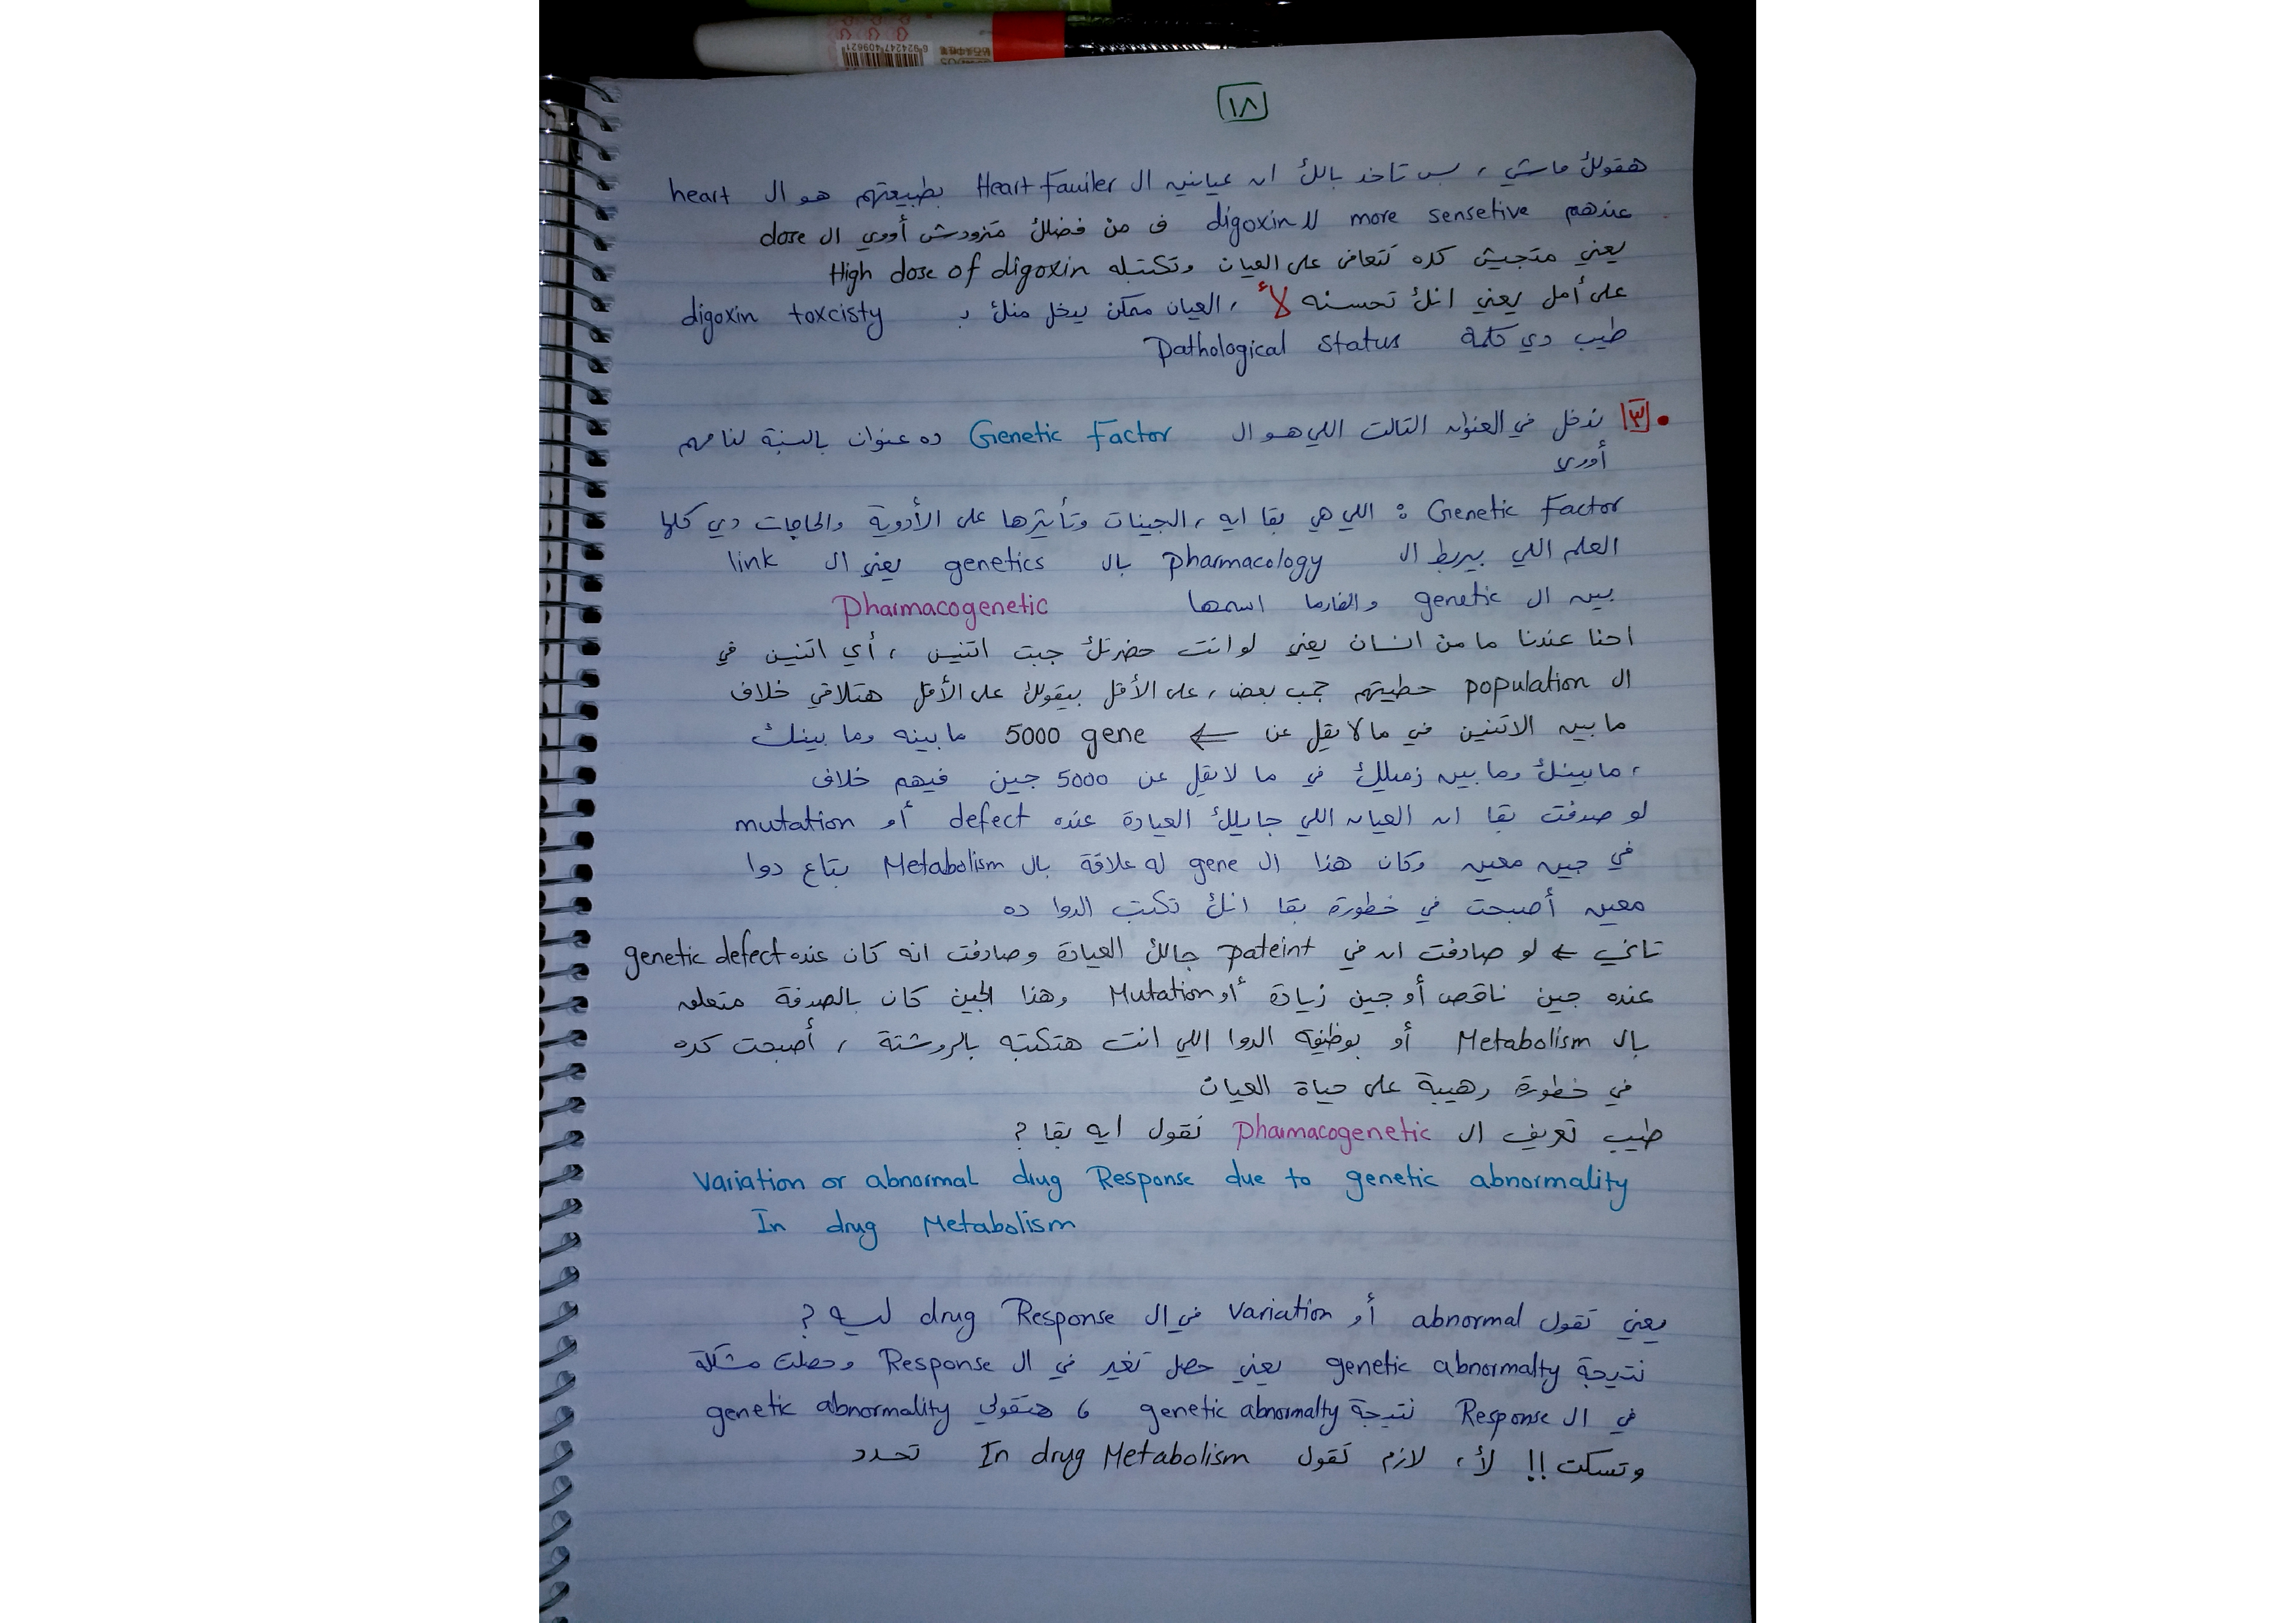 6 924247 409621
١٨
هقولك ماشي ، بس تاخد بالك ان عيانين ال Heart Fauiler بطبيعتهم هو ال heart
عندهم more sensetive لل digoxin ف من فضلك متزودش أووي ال dose
يعني متجيش كده تتعافى على العيان وتكتبله High dose of digoxin
على أمل يعني انك تحسنه لأ ، العيان ممكن يدخل منك بـ digoxin toxcisty
طيب دي كلمة Pathological status
• ٣ ندخل في العنوان التالت اللي هو ال Genetic Factor ده عنوان بالنسبة لنا مهم
أووي
Genetic Factor : اللي هي بقا ايه ، الجينات وتأثيرها على الأدوية والحاجات دي كلها
العلم اللي بيربط ال pharmacology بال genetics يعني ال link
بين ال genetic والفارما اسمها Pharmacogenetic
احنا عندنا ما من انسان يعني لو انت حضرتك جبت اتنين ، أي اتنين في
ال population حطيتهم جمب بعض ، على الأقل بيقولك على الأقل هتلاقي خلاف
ما بين الاتنين في ما لا يقل عن ⇐ 5000 gene ما بينه وما بينك
، ما بينك وما بين زميلك في ما لا يقل عن 5000 جين فيهم خلاف
لو صدفت بقا ان العيان اللي جايلك العيادة عنده defect أو mutation
في جين معين وكان هذا ال gene له علاقة بال Metabolism بتاع دوا
معين أصبحت في خطورة بقا انك تكتب الدوا ده
تاني ← لو صادفت ان في pateint جالك العيادة وصادفت انه كان عنده genetic defect
عنده جين ناقص أو جين زيادة أو Mutation وهذا الجين كان بالصدفة متعلق
بال Metabolism أو بوظيفة الدوا اللي انت هتكتبه بالروشتة ، أصبحت كده
في خطورة رهيبة على حياة العيان
طيب تعريف ال pharmacogenetic نقول ايه بقا ?
Variation or abnormal drug Response due to genetic abnormality
In drug Metabolism
يعني تقول abnormal أو Variation في ال drug Response ليه ?
نتيجة genetic abnormalty يعني حصل تغير في ال Response وحصلت مشكلة
في ال Response نتيجة genetic abnormalty ، هتقولي genetic abnormality
وتسكت !! لأ ، لازم تقول In drug Metabolism تحدد